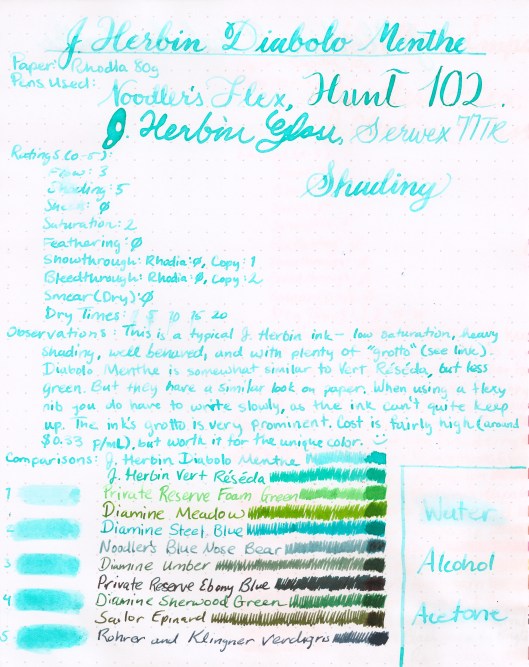 J. Herbin Diabolo Menthe
Paper: Rhodia 80g
Pens Used:
Noodler's Flex, Hunt 102.
J. Herbin Glass, Serwex MTR
Ratings (0-5):
Flow: 3
Shading
Shading: 5
Sheen: Ø
Saturation: 2
Feathering: Ø
Showthrough: Rhodia: Ø, Copy: 1
Bleedthrough: Rhodia: Ø, Copy: 2
Smear (Dry): Ø
Dry Times: 1 5 10 15 20
Observations: This is a typical J. Herbin ink- low saturation, heavy
shading, well behaved, and with plenty of "grotto" (see link).
Diabolo Menthe is somewhat similar to Vert Réséda, but less
green. But they have a similar look on paper. When using a flexy
nib you do have to write slowly, as the ink can't quite keep
up. The ink's grotto is very prominent. Cost is fairly high (around
$0.33 p/mL), but worth it for the unique color. :)
Comparisons: J. Herbin Diabolo Menthe
J. Herbin Vert Réséda
1 Private Reserve Foam Green
Diamine Meadow
2 Diamine Steel Blue
Noodler's Blue Nose Bear
3 Diamine Umber
Private Reserve Ebony Blue
4 Diamine Sherwood Green
Sailor Epinard
5 Rohrer and Klingner Verdigris
Water
Alcohol
Acetone